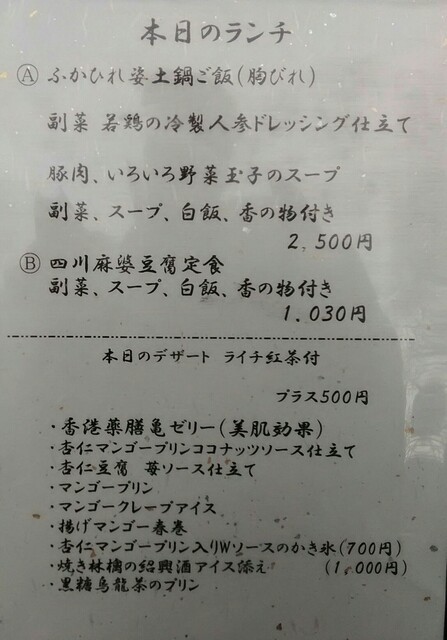 本日のランチ
Ⓐ ふかひれ姿土鍋ご飯(胸びれ)
副菜 若鶏の冷製人参ドレッシング仕立て
豚肉、いろいろ野菜玉子のスープ
副菜、スープ、白飯、香の物付き
2,500円
Ⓑ 四川麻婆豆腐定食
副菜、スープ、白飯、香の物付き
1.030円
本日のデザート ライチ紅茶付
プラス500円
・香港薬膳亀ゼリー(美肌効果)
・杏仁マンゴープリンココナッツソース仕立て
・杏仁豆腐 苺ソース仕立て
・マンゴープリン
・マンゴークレープアイス
・揚げマンゴー春巻
・杏仁マンゴープリン入りWソースのかき氷(700円)
・焼き林檎の紹興酒アイス添え (1,000円)
・黒糖烏龍茶のプリン
4